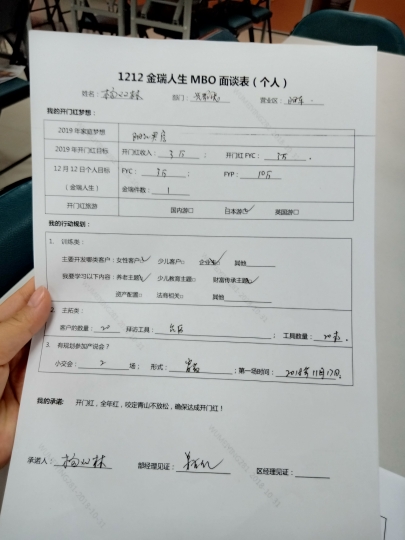 1212金瑞人生MBO面谈表(个人)
姓名: 部门: 营业区:
我的开门红梦想:
2019年家庭梦想
2019年开门红目标 开门红收入: 3万 ; 开门红FYC: 3万 。
12月12日个人目标 FYC: 3万 ; FYP: 10万
(金瑞人生) 金瑞件数: 1
开门红旅游 国内游□ 日本游☑ 英国游□
我的行动规划:
1. 训练类:
主要开发哪类客户: 女性客户☑ 少儿客户□ 企业主☑ 其他
我要学习以下内容: 养老主题☑ 少儿教育主题□ 财富传承主题☑
资产配置□ 法商相关□ 其他
2. 主拓类:
客户的数量: 20 拜访工具: ; 工具数量:
3. 有规划参加产说会?
小交会: 2 场; 形式: ; 第一场时间: 2018年11月17日。
我的承诺: 开门红,全年红,咬定青山不放松,确保达成开门红!
承诺人: 部经理见证: 区经理见证: